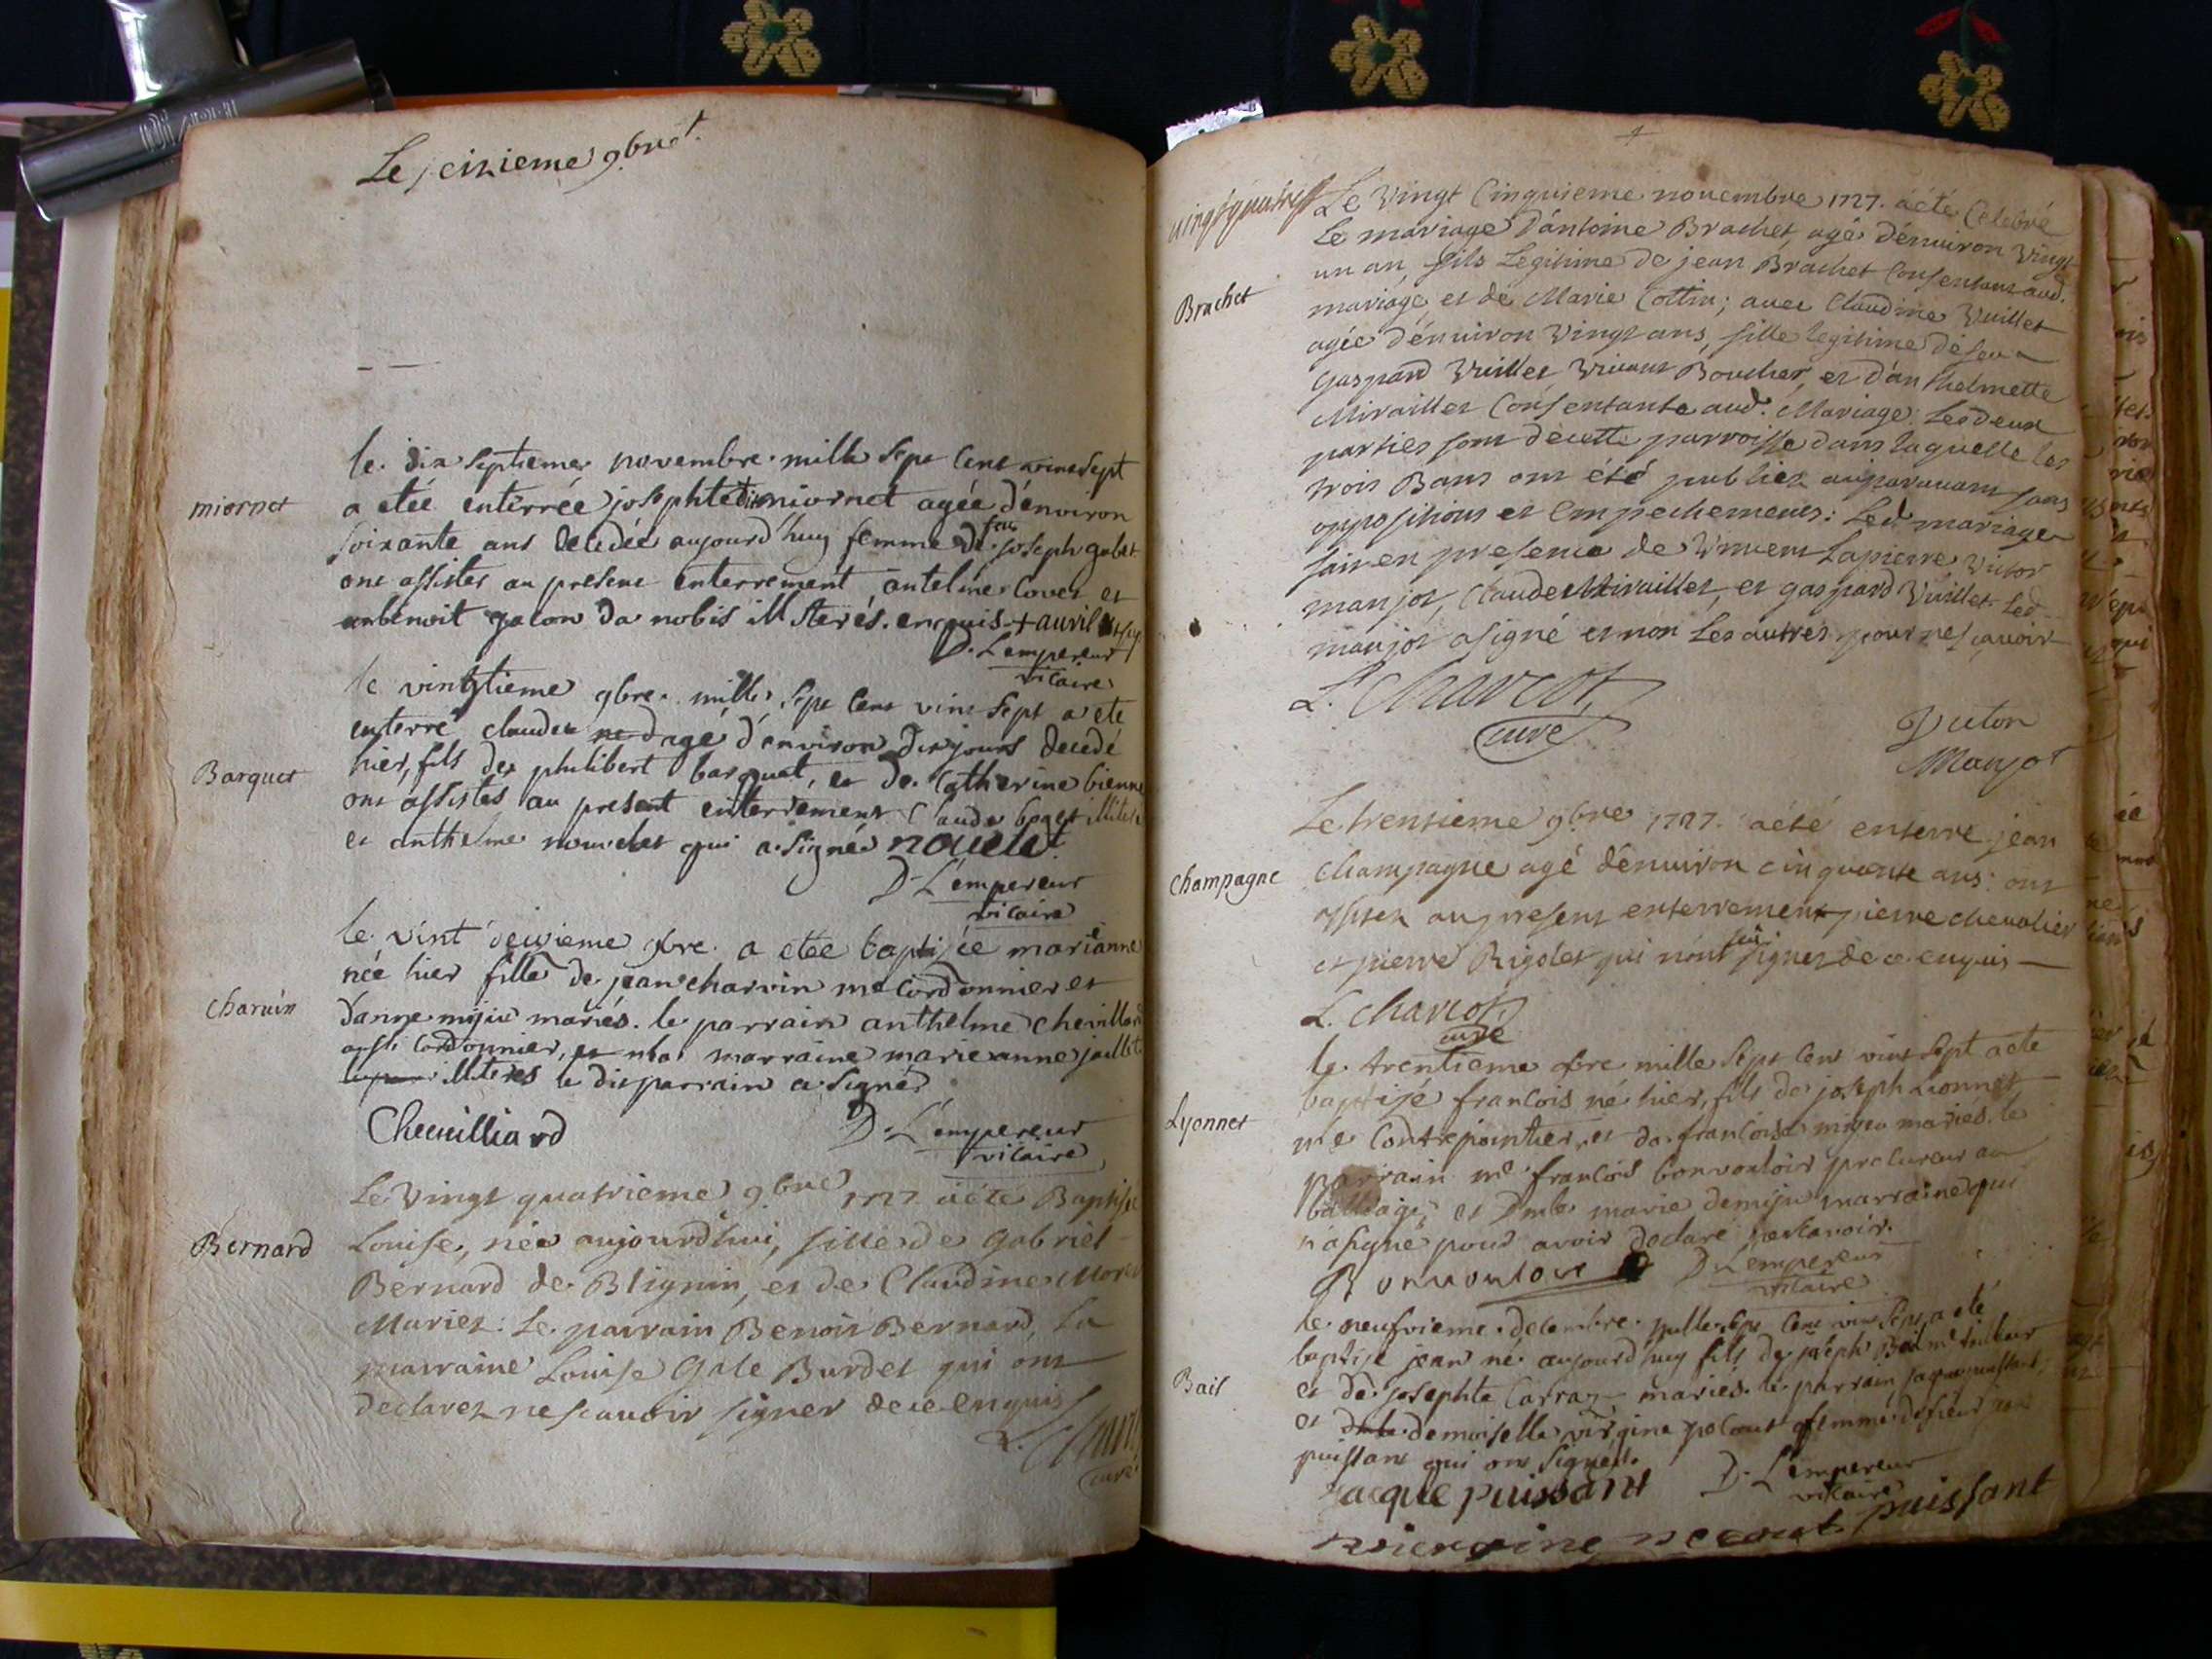 Le seizieme 9bre
le dix septieme novembre mille sept cent vint sept
miornet
a etée enterrée josephte miornet agée d'environ
soixante ans decedée aujourd'huy femme de feu joseph gobet
ont assistes au present enterrement, antelme lovet et
benoit galon illiterés. enquis
D. L'empereur
vicaire
le vingtieme 9bre. mille sept cent vint sept a ete
enterré claude agé d'environ dix jours decedé
Barquet
hier, fils de philibert barquet, et de Catherine bienne
ont assistes au present enterrement Claude
et anthelme nouvelet qui a signé nouelet
D. L'empereur
vicaire
le vint deuxieme 9bre. a etée baptisée marieanne
née hier fille de jean charvin me Cordonnier et
Charvin
d'anne mariés. le parrain anthelme chevillard
aussi Cordonnier, et marraine marie anne
illiteres le dit parrain a signé
Cheuilliard
D. L'empereur
vicaire
Le vingt quatrieme 9bre 1727. a été Baptisé
Bernard
Louise, née aujourd'hui, fille de Gabriel
Bernard de Blignin, et de Claudine
Mariez: Le parrain Benoit Bernard, La
marraine Louise Gale Burdet qui ont
declarez ne scauoir signer de ce enquis
L. Char
curé
vingt quatre
Le Vingt Cinquieme nouembre 1727. a été Celebré
Le mariage d'antoine Brachet, agé d'enuiron Vingt
un an, fils Legitime de jean Brachet Consentant aud.
Brachet
mariage, et de Marie Cottin; auec Claudine Vuillet
agée d'enuiron Vingt ans, fille legitime de feu
Gaspard Vuillet Viuant Boucher, et d'anthelmette
Miraillet Consentante aud. Mariage: Les deux
parties sont de cette parroisse dans laquelle les
trois Bans ont été publiez auparauant sans
oppositions et empechements: Led. mariage
fait en presence de Vincent Lapierre Victor
manjot, Claude Miraillet, et gaspard Vuillet. Led.
manjot a signé et non Les autres pour ne sçauoir
L. Charcot,
curé
Victor
Manjot
Le trentieme 9bre 1727. a été enterré jean
Champagne
Champagne agé d'enuiron cinquante ans: ont
assistez au present enterrement pierre cheualier
et pierre Rigolet qui n'ont sçu signer de ce enquis
L. Charcot,
curé
le trentieme 9bre mille sept cent vint sept a ete
baptisé francois né hier, fils de joseph Lionnet
Lyonnet
me Contrepointier, et de francoise mariés. le
parrain me francois bonvouloir procureur au
bailliage, et Dmlle marie marraine qui
n'a signé pour avoir declaré ne scavoir.
Bonvouloir
D. L'empereur
vicaire
le neufvieme. decembre. mille sept cent vin sept a eté
baptisé jean né aujourd'huy fils de joseph Bail me tailleur
Bail
et de josephte Carraz mariés. le parrain jacque puissant,
et demoiselle virgine femme de sieur
puissant qui ont Signés.
jacque puissant
D. L'empereur
vicaire
puissant